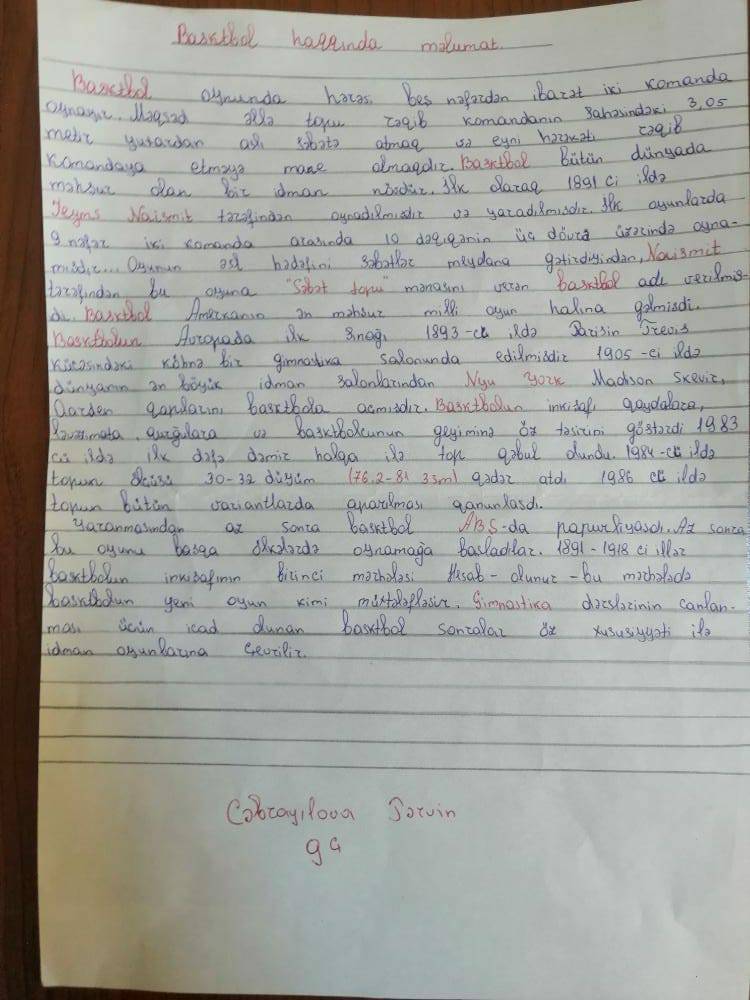 Basktbol haqqında məlumat.
Basktbol oyununda hərəsi beş nəfərdən ibarət iki komanda
oynayır. Məqsəd əllə topu rəqib komandanın sahəsindəki 3,05
metir yuxardan aslı səbətə atmaq və eyni hərəkəti rəqib
komandaya etməyə mane olmaqdır. Basktbol bütün dünyada
məhsur olan bir idman növüdür. ilk olaraq 1891 ci ildə
Jeyms Naismit tərəfindən oynadılmısdır və yaradılmısdır. ilk oyunlarda
9 nəfər iki komanda arasında 10 dəqiqənin üç dövrə üzərində oyna-
mısdır... Oyunun əsl hədəfini səbətlər meydana gətirdiyindən, Naismit
tərəfindən bu oyuna "Səbət topu" mənasını verən basktbol adı verilmis-
di. Basktbol Amerkanın ən məhsur milli oyun halına gəlmisdi.
Basktbolun Avropada ilk sınağı 1893-cü ildə Parisin Trevis
küçəsindəki köhnə bir gimnastika salonunda edilmisdir 1905-ci ildə
dünyanın ən böyük idman salonlarından Nyu York Madison Skevir,
Qarden qapılarını basktbola açmısdır. Basktbolun inkisafı qaydalara,
ləvazimata, qurğılara və basktbolcunun geyiminə öz təsirini göstərdi 1983
cü ildə ilk dəfə dəmir halqa ilə top qəbul olundu. 1984-cü ildə
topun ölçüsü 30-32 düyüm (76.2-81 33m) qədər atdı 1986 cü ildə
topun bütün variantlarda aparılması qanunlasdı.
Yaranmasından az sonra basktbol ABS-da papurliyasdı. Az sonra
bu oyunu basqa ölkələrdə oynamağa basladılar. 1891-1918 ci illər
basktbolun inkisafının birinci mərhələsi Hesab-olunur-bu mərhələdə
basktbolun yeni oyun kimi müxtələfləsir. Gimnastika dərslərinin canlan-
ması üçün icad olunan basktbol sonralar öz xususiyyəti ilə
idman oyunlarına çevrilir.
Cəbrayılova Pərvin
9 ç